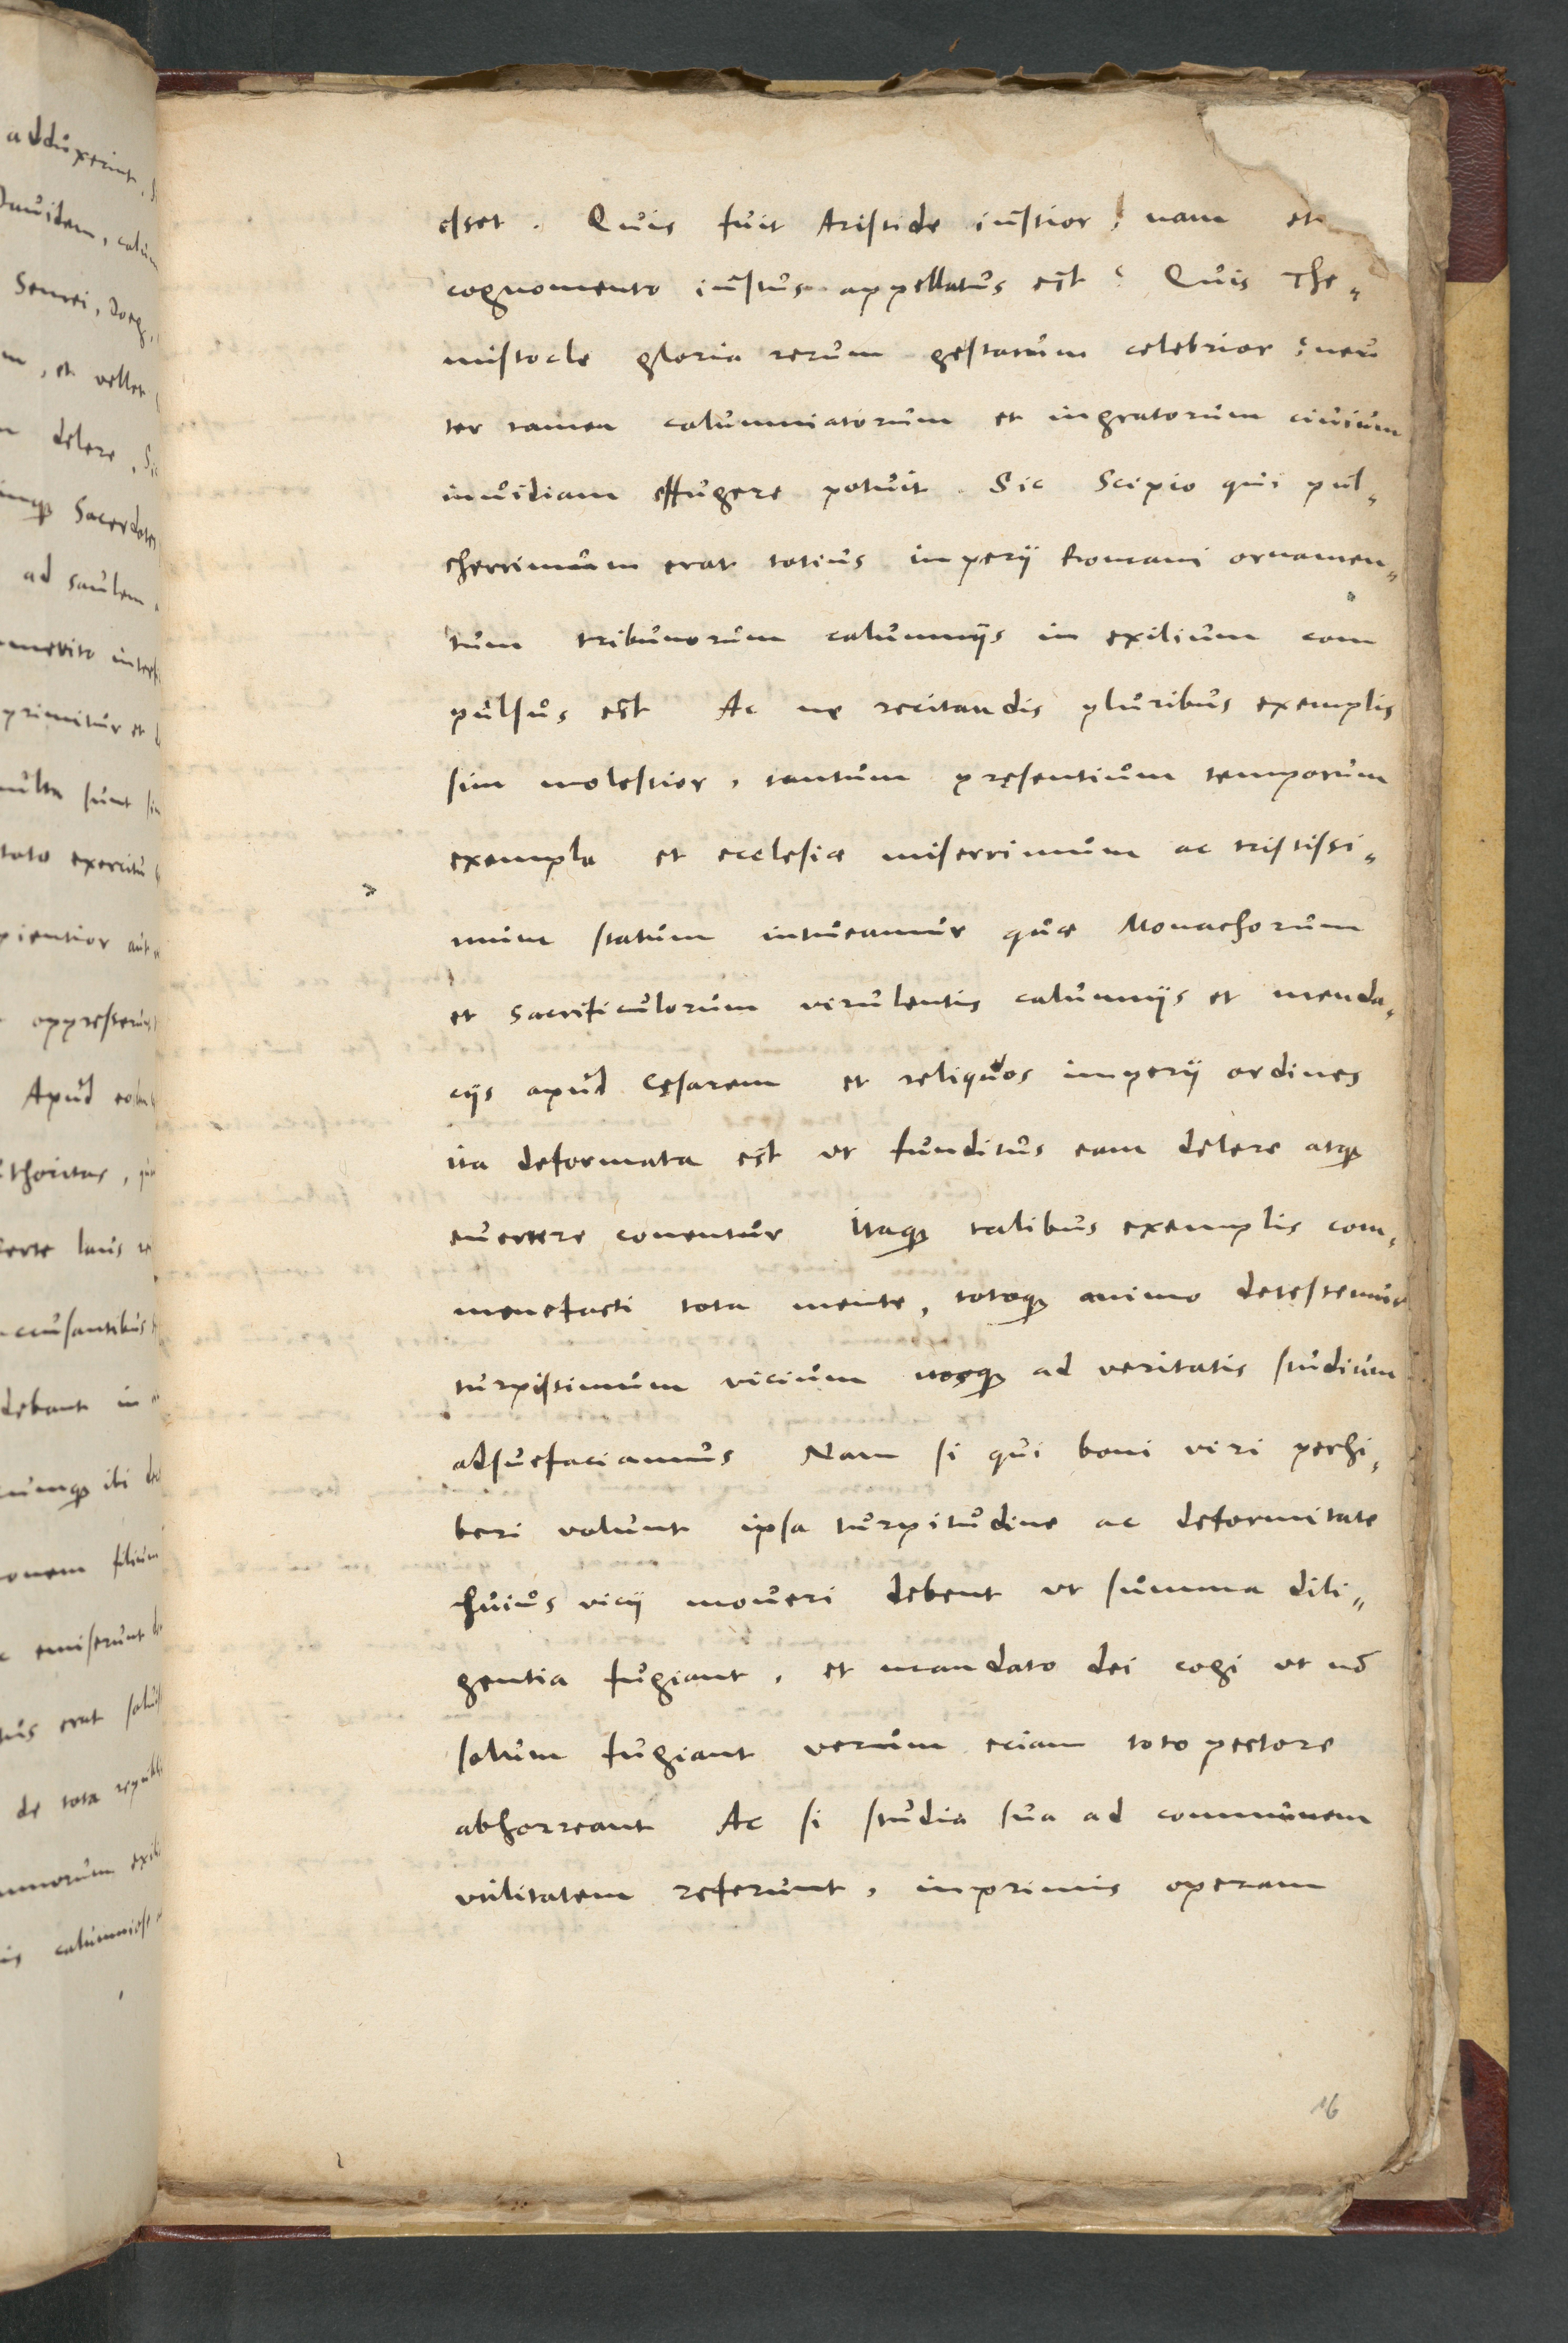 esset. Quis fuit Aristide iustior? nam et
cognomento iustus appellatus est? Quis The„
mistocle gloria rerum gestarum celebrior? neu
ter tamen calumniatorum et ingratorum ciuium
inuidiam effugere potuit. Sic Scipio qui pul„
cherrimum erat totius imperij Romani ornamen„
tum tribunorum calumnijs in exilium com
pulsus est Ac ne recitandis pluribus exemplis
sim molestior, tantum pręsentium temporum
exempla et ecclesiæ miserrimum ac tristissi„
mum statum intueamur quæ Monachorum
et sacrificulorum virulentis calumnijs et menda„
cijs apud Cęsarem et reliquos imperij ordines
ita deformata est ut funditus eam delere atqꝫ
euertere conentur Itaqꝫ talibus exemplis com„
monefacti tota mente, totoqꝫ animo detestemur
turpissimum vicium nosqꝫ ad veritatis studium
adsuefaciamus Nam si qui boni viri perhi„
beri volunt ipsa turpitudine ac deformitate
huius vicij moueri debent ut summa dili„
gentia fugiant, et mandato dei cogi ut nō
solum fugiant verum eciam toto pectore
abhorreant Ac si studia sua ad communem
vtilitatem referunt, inprimis operam
16